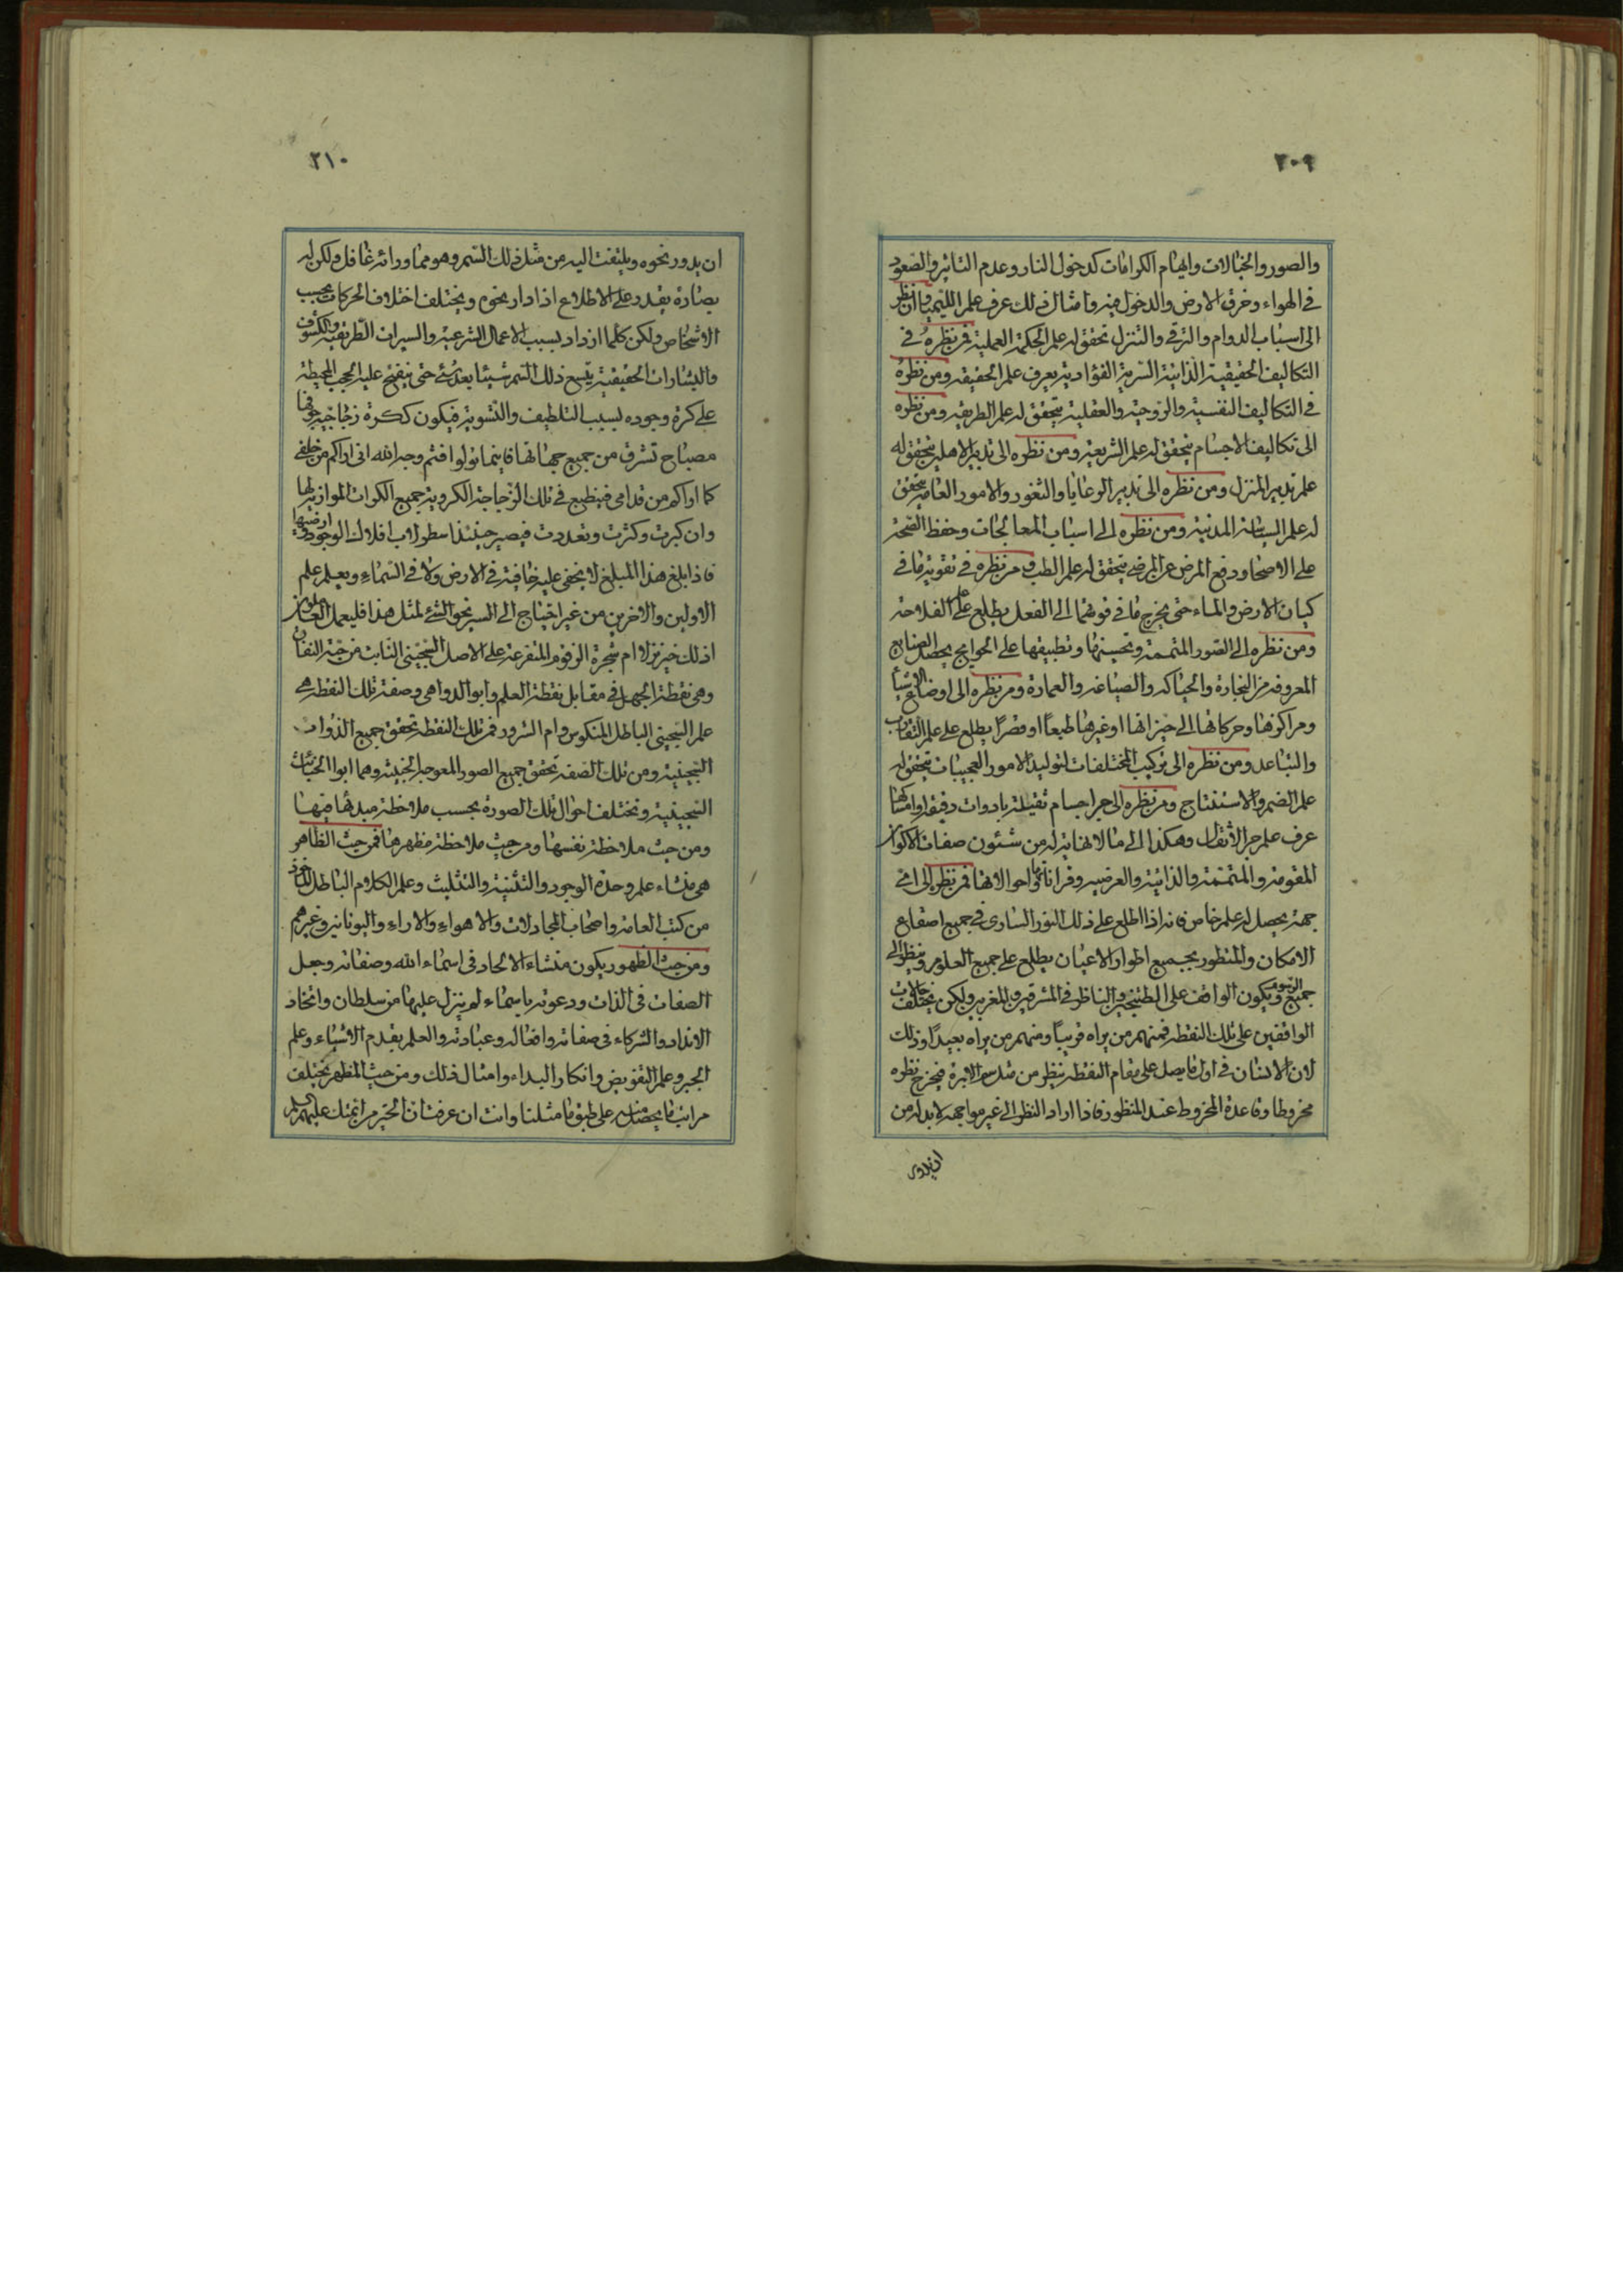 ٢٠٩
والصور والخيالات وايهام الكرامات كدخول النار وعدم التاثير والصعود
في الهواء وخرق الارض والدخول فيه وامثال ذلك عرف علم الليميا وان نظر
الى اسباب الدوام والترقي والتنزل تحقق له علم الحكمة العملية فمن نظره في
التكاليف الحقيقية الذاتية السرمدية الفؤادية يعرف علم الحقيقة ومن نظره
في التكاليف النفسية والروحية والعقلية يتحقق له علم الطريقة ومن نظره
الى تكاليف الاجسام يتحقق له علم الشريعة ومن نظره الى تدبير الاهل يتحقق له
علم تدبير المنزل ومن نظره الى تدبير الرعايا والثغور والامور العامة يتحقق
له علم السياسة المدنية ومن نظره الى اسباب المعالجات وحفظ الصحة
على الاصحاء ودفع المرض عن المرضى يتحقق له علم الطب ومن نظره في تقوية ما في
كيان الارض والماء حتى يخرج ما في قوتهما الى الفعل يطلع على علم الفلاحة
ومن نظره الى الصور المتممة وتحسينها وتطبيقها على الحوايج يحصل الصنايع
المعروفة من النجارة والحياكة والصياغة والعمارة ومن نظره الى اوضاع الاشياء
ومراكزها وحركاتها الى حيزاتها او غيرها طبعاً او قسراً يطلع على علم التقارب
والتباعد ومن نظره الى تركيب المختلفات لتوليد الامور العجيبات يتحقق له
علم الضم والاستنتاج ومن نظره الى جر اجسام ثقيلة بادوات دقيقة او امساكها
عرف علم جر الاثقال وهكذا الى ما لا نهاية له من شئون صفات الاكوان
المقومة والمتممة والذاتية والعرضية وقراناتها واحوالاتها فمن نظر الى اي
جهة يحصل له علم خاص فانه اذا اطلع على ذلك النور الساري في جميع اصقاع
الامكان والمنظور بجميع اطوار الاعيان يطلع على جميع العلوم وينظر الى
جميع الرسوم ويكون الواقف على الطتنجين والناظر في المشرقين والمغربين ولكن يختلف حالات
الواقفين على تلك النقطة فمنهم من يراه قريباً ومنهم من يراه بعيداً وذلك
لان الانسان في اول ما يصل على مقام النقطة ينظر من مثل سم الابرة فيخرج نظره
مخروطا وقاعدة المخروط عند المنظور فاذا اراد النظر الى غير مواجهه لابد له من
ان يدور
٢١٠
ان يدور نحوه ويلتفت اليه من مثل ذلك السم وهو مما ورائه غافل ولكن له
يصاره يقدر على الاطلاع اذا دار نحوه ويختلف اختلاف الحركات بحسب
الاشخاص ولكن كلما ازداد بسبب الاعمال الشرعية والسيرات الطريقية والكشوف
والبشارات الحقيقية يتسع ذلك السم شيئا بعد شئ حتى ينفتح عليه الحجب المحيطة
على كرة وجوده بسبب التلطيف والتسوية فيكون ككرة زجاجية جوفها
مصباح تشرق من جميع جهاتها فاينما تولوا فثم وجه الله اني اراكم من خلفي
كما اراكم من قدامي فينطبع في تلك الزجاجة الكروية جميع الكرات الموازية لها
وان كبرت وكثرت وتعددت فيصير حينئذ اسطرلاب افلاك الوجود وارضيها
فاذا بلغ هذا المبلغ لا يخفى عليه خافية في الارض ولا في السماء ويعلم علم
الاولين والاخرين من غير احتياج الى السير نحو الشئ لمثل هذا فليعمل العاملون
اذلك خير نزلا ام شجرة الزقوم المتفرعة على الاصل السجيني النابت من جنة النفاق
وهي نقطة الجهل في مقابل نقطة العلم وابو الدواهي وصفة تلك النقطة هي
علم السجيني الباطل المنكوس وام الشرور فمن تلك النقطة تحقق جميع الذوات
السجينية ومن تلك الصفة تحقق جميع الصور المعوجة الخبيثة وهما ابوا الخبائث
السجينية وتختلف احوال تلك الصورة بحسب ملاحظة مبدئها فيها
ومن حيث ملاحظة نفسها ومن حيث ملاحظة مظهرها فمن حيث الظاهر
هي منشاء علم وحدة الوجود والتثنية والتثليث وعلم الكلام الباطل الماخوذ
من كتب العامة واصحاب المجادلات والاهواء والاراء واليونانية وغيرهم
ومن حيث الظهور يكون منشاء الالحاد في اسماء الله وصفاته وجعل
الصفات في الذات ودعوته باسماء لم ينزل عليها من سلطان واتخاذ
الانداد والشركاء في صفاته وافعاله وعبادته والعلم بقدم الاشياء وعلم
الجبر وعلم التفويض وانكار البداء وامثال ذلك ومن حيث المظهر يختلف
مراتب ما يحصل منه على طبق ما مثلنا وانت ان عرفت ان الخير من ائمتك عليهم السلام